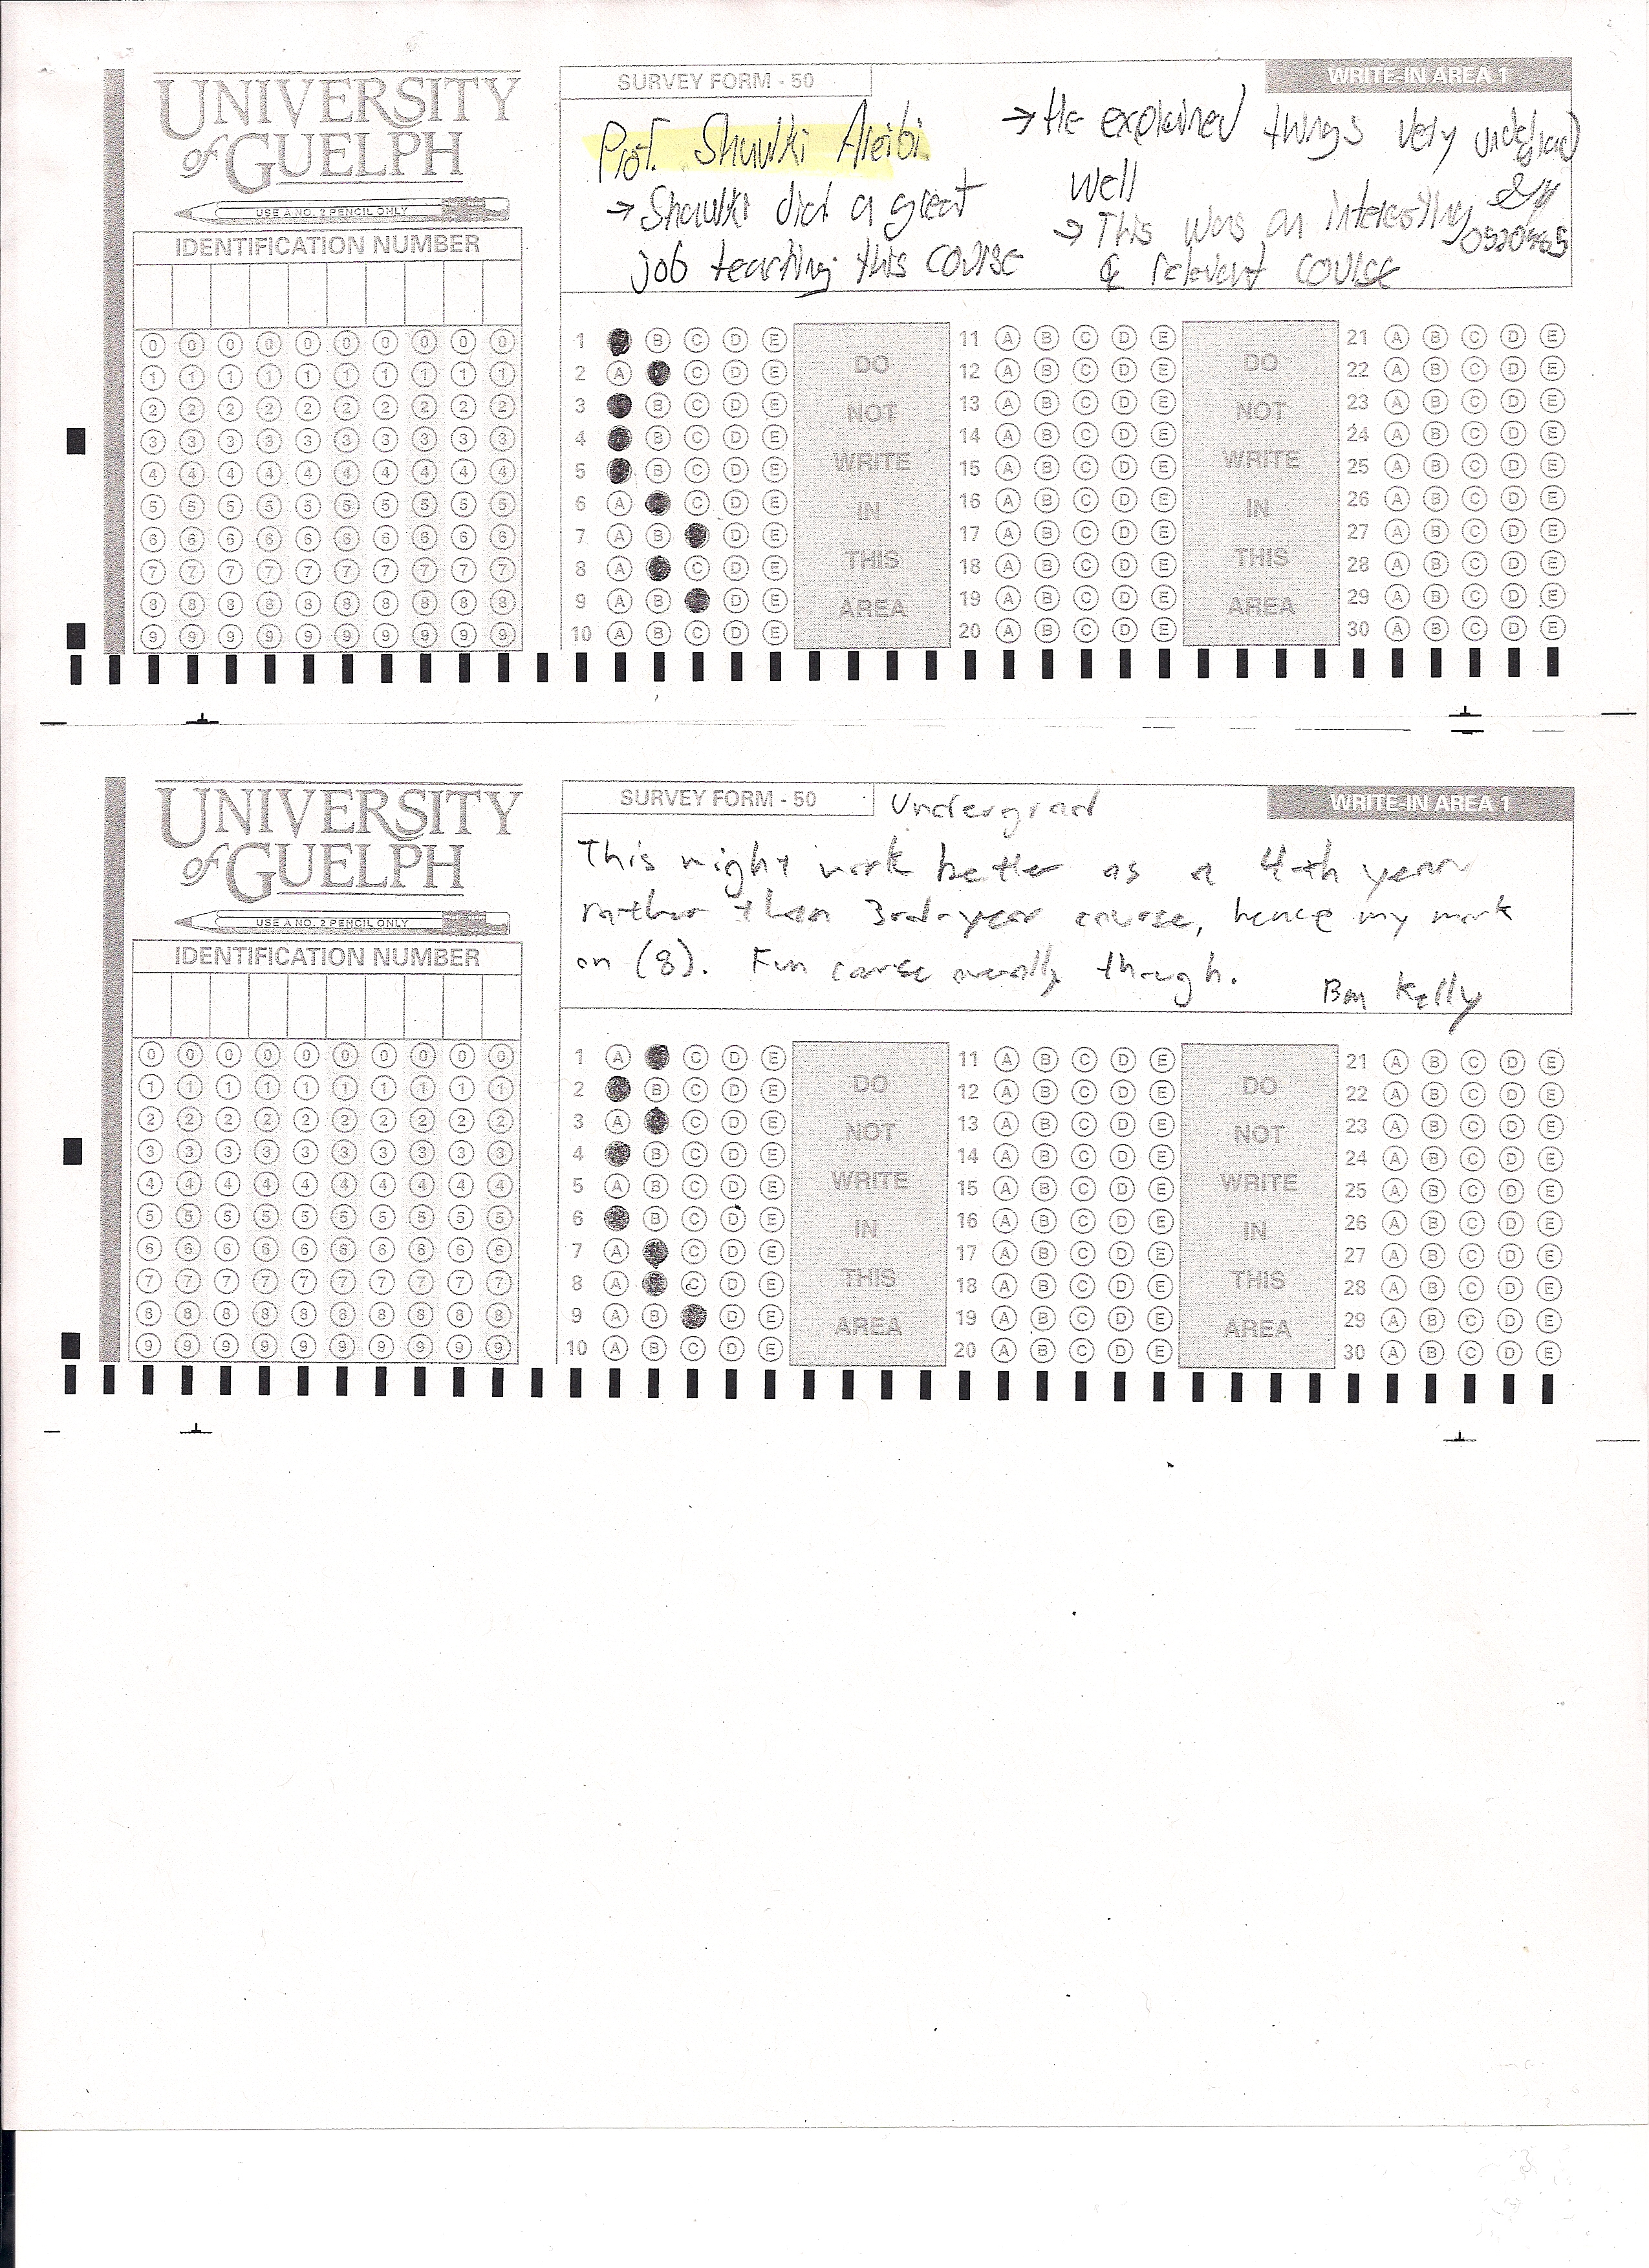 UNIVERSITY
of GUELPH
USE A NO. 2 PENCIL ONLY
IDENTIFICATION NUMBER
0 0 0 0 0 0 0 0 0 0
1 1 1 1 1 1 1 1 1 1
2 2 2 2 2 2 2 2 2 2
3 3 3 3 3 3 3 3 3 3
4 4 4 4 4 4 4 4 4 4
5 5 5 5 5 5 5 5 5 5
6 6 6 6 6 6 6 6 6 6
7 7 7 7 7 7 7 7 7 7
8 8 8 8 8 8 8 8 8 8
9 9 9 9 9 9 9 9 9 9
SURVEY FORM - 50
WRITE-IN AREA 1
Prof. Shawki Areibi
→ Shawki did a great
job teaching this course
→ He explained things very
well
→ This was an interesting
& relevent course
undergrad
1 B C D E
2 A C D E
3 B C D E
4 B C D E
5 B C D E
6 A C D E
7 A B D E
8 A C D E
9 A B D E
10 A B C D E
DO
NOT
WRITE
IN
THIS
AREA
11 A B C D E
12 A B C D E
13 A B C D E
14 A B C D E
15 A B C D E
16 A B C D E
17 A B C D E
18 A B C D E
19 A B C D E
20 A B C D E
DO
NOT
WRITE
IN
THIS
AREA
21 A B C D E
22 A B C D E
23 A B C D E
24 A B C D E
25 A B C D E
26 A B C D E
27 A B C D E
28 A B C D E
29 A B C D E
30 A B C D E
UNIVERSITY
of GUELPH
USE A NO. 2 PENCIL ONLY
IDENTIFICATION NUMBER
0 0 0 0 0 0 0 0 0 0
1 1 1 1 1 1 1 1 1 1
2 2 2 2 2 2 2 2 2 2
3 3 3 3 3 3 3 3 3 3
4 4 4 4 4 4 4 4 4 4
5 5 5 5 5 5 5 5 5 5
6 6 6 6 6 6 6 6 6 6
7 7 7 7 7 7 7 7 7 7
8 8 8 8 8 8 8 8 8 8
9 9 9 9 9 9 9 9 9 9
SURVEY FORM - 50
Undergrad
WRITE-IN AREA 1
This might work better as a 4th year
rather than 3rd-year course, hence my mark
on (8). Fun course overally though.
Ben Kelly
1 A C D E
2 B C D E
3 A C D E
4 B C D E
5 A B C D E
6 B C D E
7 A C D E
8 A C D E
9 A B D E
10 A B C D E
DO
NOT
WRITE
IN
THIS
AREA
11 A B C D E
12 A B C D E
13 A B C D E
14 A B C D E
15 A B C D E
16 A B C D E
17 A B C D E
18 A B C D E
19 A B C D E
20 A B C D E
DO
NOT
WRITE
IN
THIS
AREA
21 A B C D E
22 A B C D E
23 A B C D E
24 A B C D E
25 A B C D E
26 A B C D E
27 A B C D E
28 A B C D E
29 A B C D E
30 A B C D E